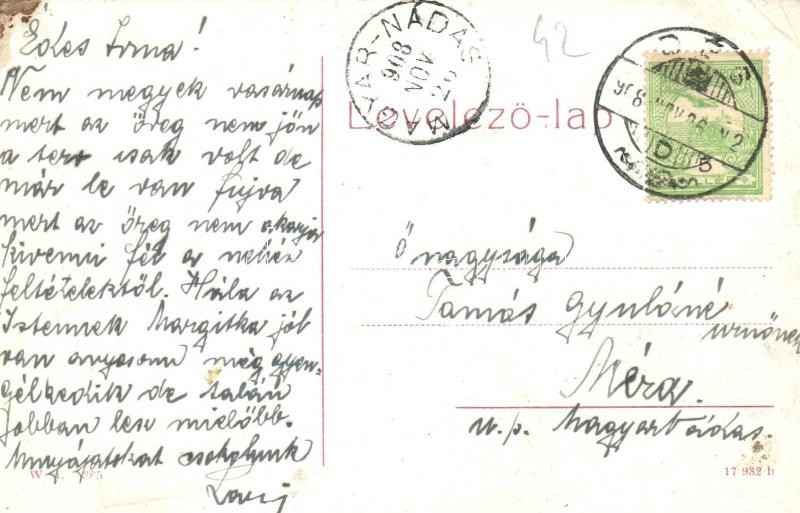 Édes Irma!
Nem megyek vasárnap
mert az öreg nem jön
a terv csak volt de
már le van fujva
mert az öreg nem akarja
kivenni fél a nehéz
feltételektől. Hála az
Istennek Margitka jól
van anyósom még gyen-
gélkedik de talán
jobban lesz mielőbb.
csókolunk
W. L. 
MAGYAR-NÁDAS
908
NOV
27
42
Levelező-lap
908 NOV 26
5
Ő nagysága
Tamás Gyuláné
urnőnek
Méra.
u. p. Magyarnádas.
17 932 h